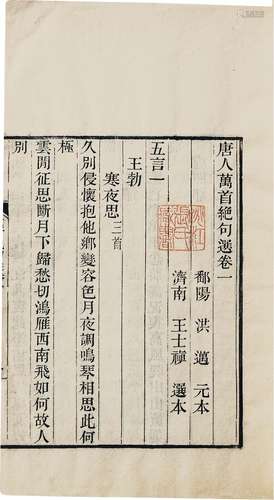 唐人萬首絶句選卷一
鄱陽 洪邁 元本
濟南 王士禛 選本
五言一
王勃
寒夜思三首
久別侵懷抱他鄉變容色月夜調鳴琴相思此何
極
雲間征思斷月下歸愁切鴻雁西南飛如何故人
別